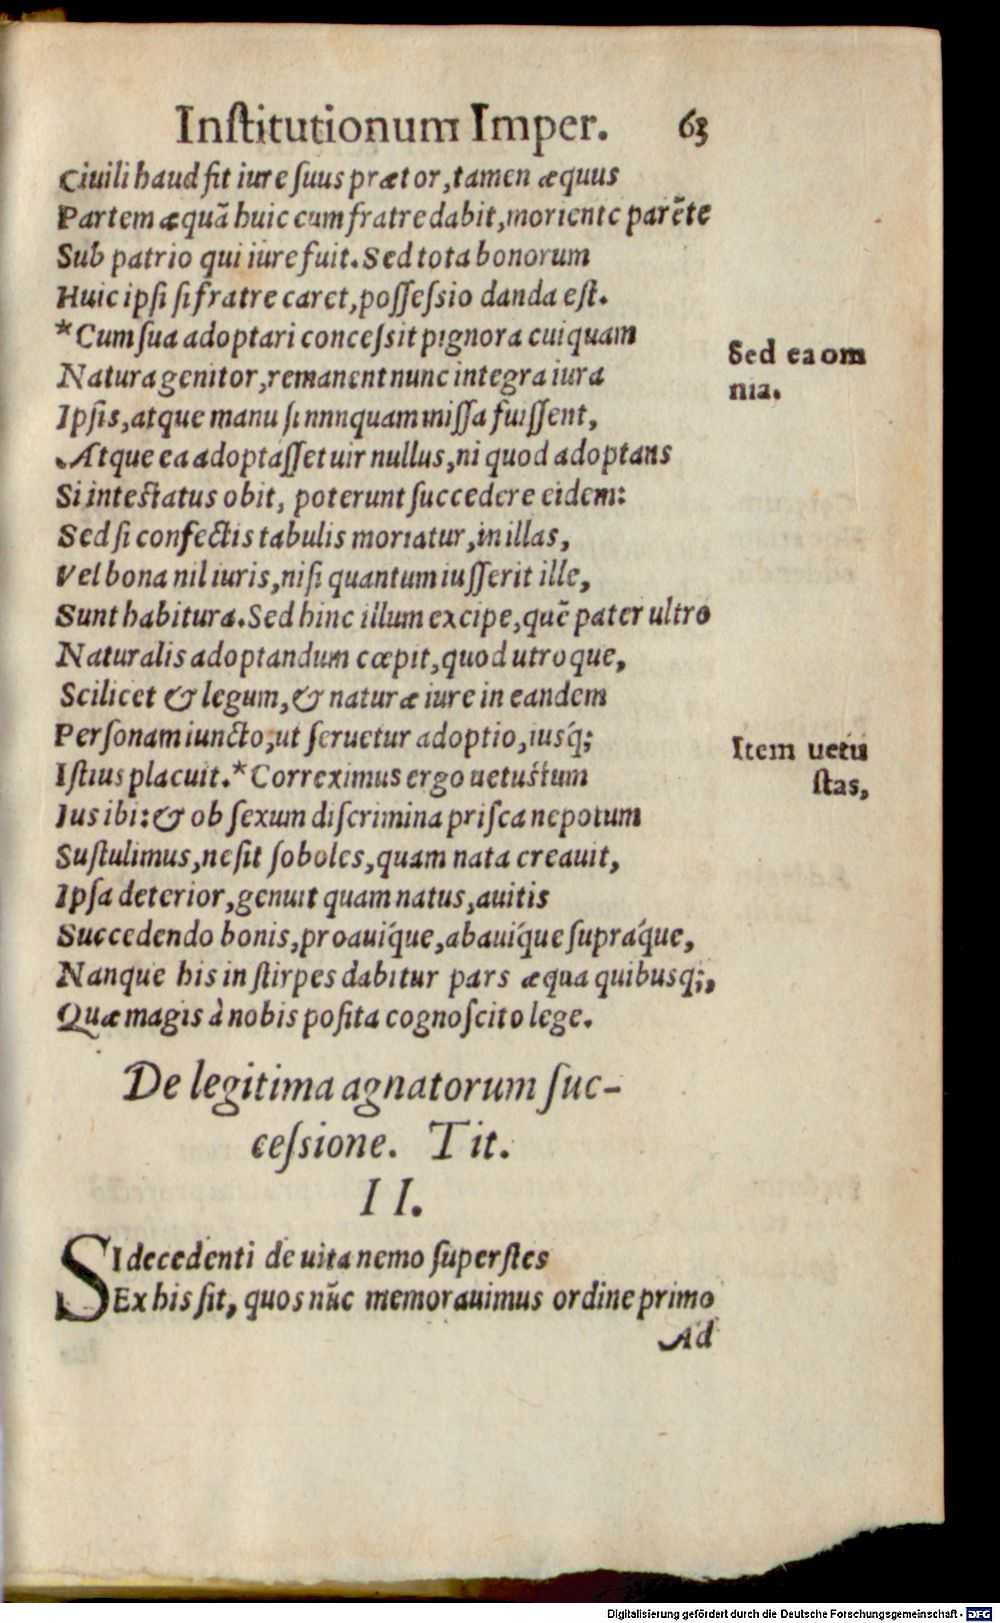 Inſtitutionum Imper. 63
Ciuili haud ſit iure ſuus prætor, tamen æquus
Partem æquã huic cum fratre dabit, moriente parẽte
Sub patrio qui iure fuit. Sed tota bonorum
Huic ipſi ſi fratre caret, poſſeſsio danda eſt.
*Cum ſua adoptari conceſsit pignora cuiquam
Sed ea om
nia.
Natura genitor, remanent nunc integra iura
Ipſis, atque manu ſi nnnquam miſſa fuiſſent,
Atque ea adoptaſſet uir nullus, ni quod adoptans
Si inteſtatus obit, poterunt ſuccedere eidem:
Sed ſi confectis tabulis moriatur, in illas,
Vel bona nil iuris, niſi quantum iuſſerit ille,
Sunt habitura. Sed hinc illum excipe, quẽ pater ultro
Naturalis adoptandum cœpit, quod utroque,
Scilicet & legum, & naturæ iure in eandem
Perſonam iuncto, ut ſeruetur adoptio, iusq́;
Item uetu
ſtas,
Iſtius placuit. *Correximus ergo uetuſtum
Ius ibi: & ob ſexum diſcrimina priſca nepotum
Suſtulimus, ne ſit ſoboles, quam nata creauit,
Ipſa deterior, genuit quam natus, auitis
Succedendo bonis, proauiq́ue, abauiq́ue ſupraq́ue,
Nanque his in ſtirpes dabitur pars æqua quibusq;,
Quæ magis à nobis poſita cognoſcito lege.
De legitima agnatorum ſuc-
ceſsione. Tit.
II.
SI decedenti de uita nemo ſuperſtes
Ex his ſit, quos nũc memorauimus ordine primo
Ad
Digitalisierung gefördert durch die Deutsche Forschungsgemeinschaft - DFG